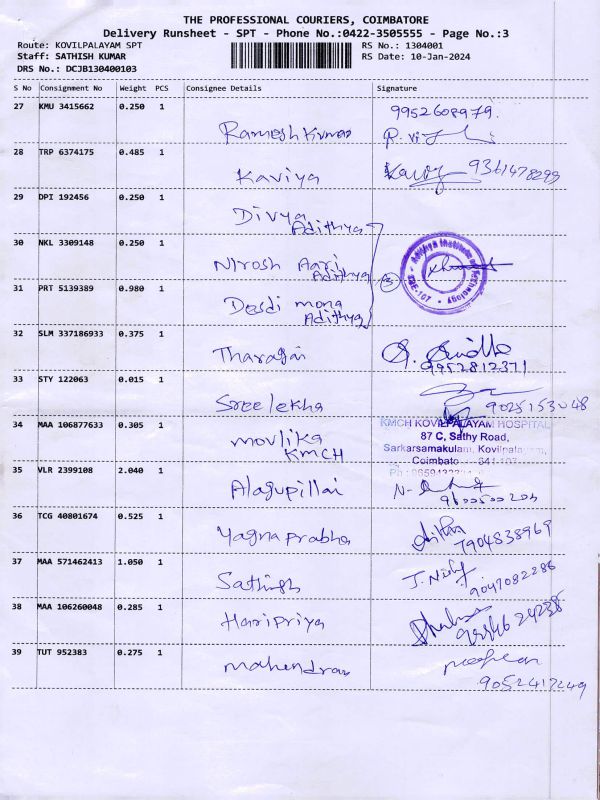 THE PROFESSIONAL COURIERS, COIMBATORE
Delivery Runsheet - SPT - Phone No.:0422-3505555 - Page No.:3
Route: KOVILPALAYAM SPT RS No.: 1304001
Staff: SATHISH KUMAR RS Date: 10-Jan-2024
DRS No.: DCJB130400103
S No Consignment No Weight PCS Consignee Details Signature
27 KMU 3415662 0.250 1 Ramesh Kumar 9952608979.
28 TRP 6374175 0.485 1 Kaviya 9361478299
29 DPI 192456 0.250 1 Divya
Adithya
30 NKL 3309148 0.250 1 Nirosh Aari
Adithya
31 PRT 5139389 0.980 1 Desdi mona
Adithya
3
Adithya Institute of Technology
CBE-107
32 SLM 337186933 0.375 1 Tharagai
9952812371
33 STY 122063 0.015 1 Sree lekha 9025153048
34 MAA 106877633 0.305 1 Movlika
KMCH
KMCH KOVILPALAYAM HOSPITAL
87 C, Sathy Road,
Sarkarsamakulam, Kovilpalayam,
35 VLR 2399108 2.040 1 Alagupillai
36 TCG 40801674 0.525 1 Yagna prabha
7904838969
37 MAA 571462413 1.050 1 Sathish
9047082286
38 MAA 106260048 0.285 1 Haripriya
39 TUT 952383 0.275 1 Mahendran
9052417249